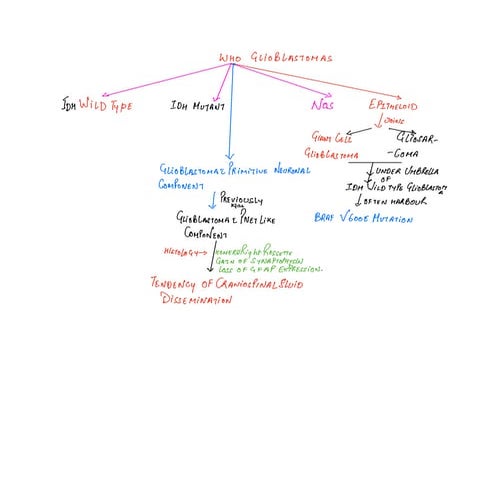 WHO GLIOBLASTOMAS
IDH WILD TYPE
IDH MUTANT
NOS
EPITHELOID
↓ JOINS
GIANT CELL
GLIOBLASTOMA
GLIOSAR-
-COMA
↓ UNDER UMBRELLA
OF
IDH WILD TYPE GLIOBLASTOMA
↓ OFTEN HARBOUR
BRAF V600E MUTATION
GLIOBLASTOMA C PRIMITIVE NEURONAL
COMPONENT
↓ PREVIOUSLY
GLIOBLASTOMA C PNET LIKE
COMPONENT
HISTOLOGY →
HOMER RIGHT ROSSETTE
GAIN OF SYNAPTOPHYSIN
LOSS OF GFAP EXPRESSION.
TENDENCY OF CRANIOSPINAL FLUID
DISSEMINATION